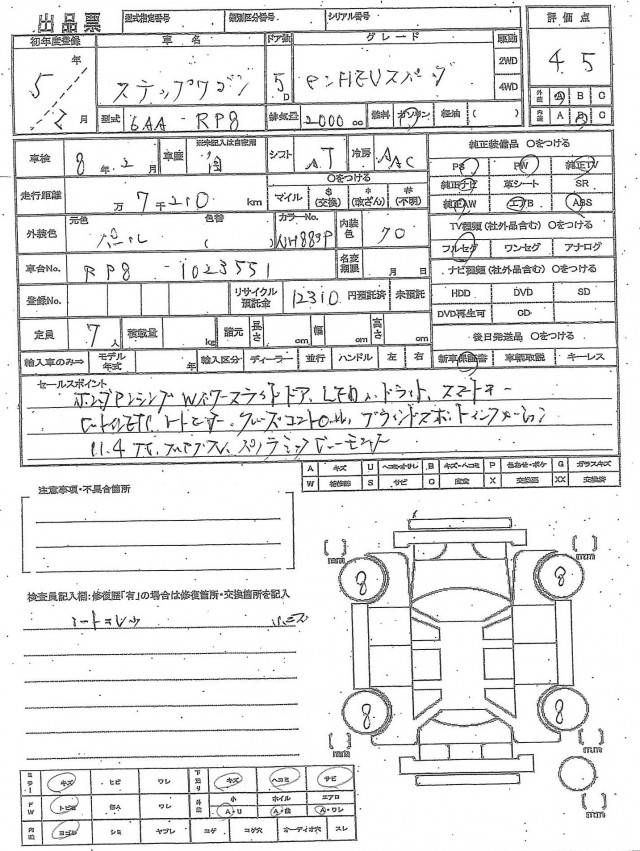 出品票 型式指定番号 類別区分番号 シリアル番号 評価点
初年度登録 車名 ドア数 グレード 駆動
5年 2月 ステップワゴン 5D e:HEVスパーダ 2WD 4WD 4 5
型式 6AA - RP8 排気量 2000 cc 燃料 ガソリン 軽油 ( ) 外装 A B C
内装 A B C
車検 8年 2月 車歴 ※未記入は自家用 シフト AT 冷房 AAC 純正装備品 ○をつける
走行距離 万 7千210 km ○をつける マイル $(交換) *(改ざん) #(不明) PS PW 純正TV
純正ナビ 革シート SR
純正AW エアB ABS
外装色 元色 パール 色替 ( ) カラーNo. NH883P 内装色 70 TV種類(社外品含む) ○をつける
フルセグ ワンセグ アナログ
車台No. RP8 - 1023551 名変期限 月 日 ナビ種類(社外品含む) ○をつける
登録No. リサイクル預託金 12310 円預託済 未預託 HDD DVD SD
DVD再生可 CD
定員 7人 積載量 kg 諸元 長さ cm 幅 cm 高さ cm 後日発送品 ○をつける
輸入車のみ⇒ モデル年式 年 輸入区分 ディーラー 並行 ハンドル 左 右 新車保証書 車輌取説 キーレス
セールスポイント
ホンダセンシング Wパワースライドドア、LED
クルーズコントロール、ブラインドスポットインフォメーション
11.4
A キズ U ヘコミ・オサレ B キズ・ヘコミ P 色あせ・ボケ G ガラスキズ
W 補修跡 S サビ C 腐食 X 交換要 XX 交換済
注意事項・不具合箇所
検査員記入欄:修復歴「有」の場合は修復箇所・交換箇所を記入
シートヨレ
mm mm
8 8
8 8
mm mm
mm
ミラー キズ ヒビ ワレ 下廻り キズ ヘコミ サビ
FW トビ石 ワレ 外装 小 A・U ホイル エアロ A・ワレ
内装 ヨゴレ シミ ヤブレ コゲ コゲ穴 オーディオ穴 スレ